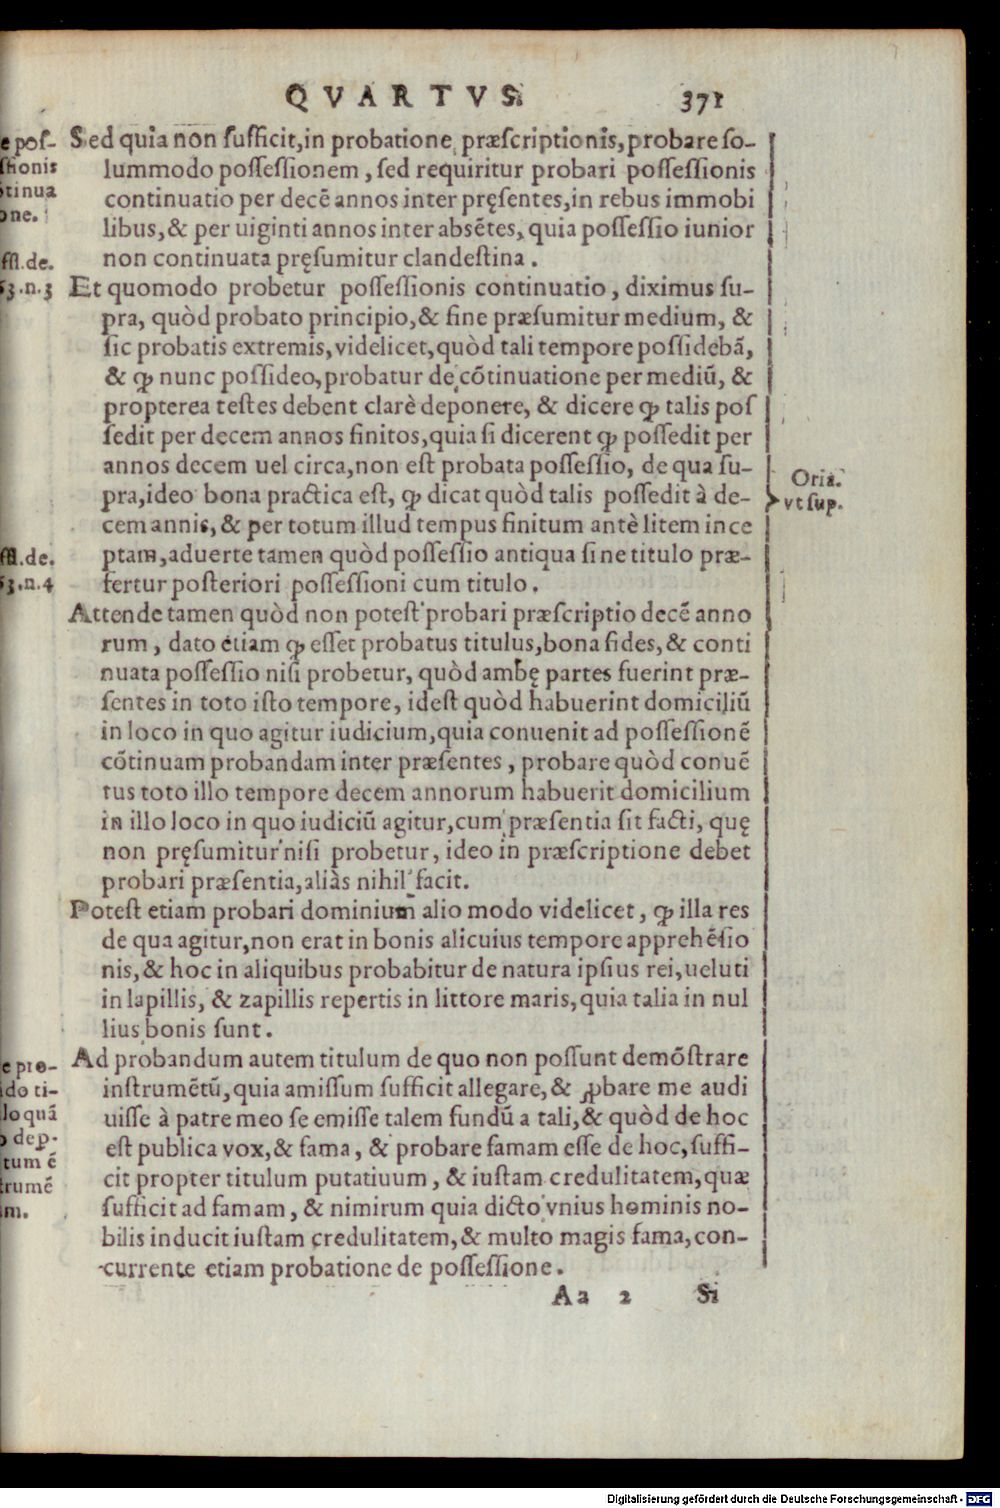 QVARTVS. 371
Sed quia non sufficit, in probatione præscriptionis, probare so-
lummodo possessionem, sed requiritur probari possessionis
continuatio per decē annos inter pręsentes, in rebus immobi
libus, & per uiginti annos inter absētes, quia possessio iunior
non continuata pręsumitur clandestina.
Et quomodo probetur possessionis continuatio, diximus su-
pra, quòd probato principio, & fine præsumitur medium, &
sic probatis extremis, videlicet, quòd tali tempore possidebā,
& ꝙ nunc possideo, probatur de cōtinuatione per mediū, &
propterea testes debent clarè deponere, & dicere ꝙ talis pos
sedit per decem annos finitos, quia si dicerent ꝙ possedit per
annos decem uel circa, non est probata possessio, de qua su-
pra, ideo bona practica est, ꝙ dicat quòd talis possedit à de-
cem annis, & per totum illud tempus finitum antè litem ince
ptam, aduerte tamen quòd possessio antiqua sine titulo præ-
fertur posteriori possessioni cum titulo.
Attende tamen quòd non potest probari præscriptio decē anno
rum, dato etiam ꝙ esset probatus titulus, bona fides, & conti
nuata possessio nisi probetur, quòd ambę partes fuerint præ-
sentes in toto isto tempore, idest quòd habuerint domiciliū
in loco in quo agitur iudicium, quia conuenit ad possessionē
cōtinuam probandam inter præsentes, probare quòd conuē
tus toto illo tempore decem annorum habuerit domicilium
in illo loco in quo iudiciū agitur, cum præsentia sit facti, quę
non pręsumitur nisi probetur, ideo in præscriptione debet
probari præsentia, aliàs nihil facit.
Potest etiam probari dominium alio modo videlicet, ꝙ illa res
de qua agitur, non erat in bonis alicuius tempore apprehēsio
nis, & hoc in aliquibus probabitur de natura ipsius rei, ueluti
in lapillis, & zapillis repertis in littore maris, quia talia in nul
lius bonis sunt.
Ad probandum autem titulum de quo non possunt demōstrare
instrumētū, quia amissum sufficit allegare, & ꝓbare me audi
uisse à patre meo se emisse talem fundū a tali, & quòd de hoc
est publica vox, & fama, & probare famam esse de hoc, suffi-
cit propter titulum putatiuum, & iustam credulitatem, quæ
sufficit ad famam, & nimirum quia dicto vnius hominis no-
bilis inducit iustam credulitatem, & multo magis fama, con-
currente etiam probatione de possessione.
Aa 2 Si
e pos-
ssionis
ōtinua
one.
ffl.de.
53.n.3
ffl.de.
53.n.4
e pro-
do ti-
lo quā
o dep.
tum ē
trumē
m.
Oria.
vt sup.
Digitalisierung gefördert durch die Deutsche Forschungsgemeinschaft - DFG